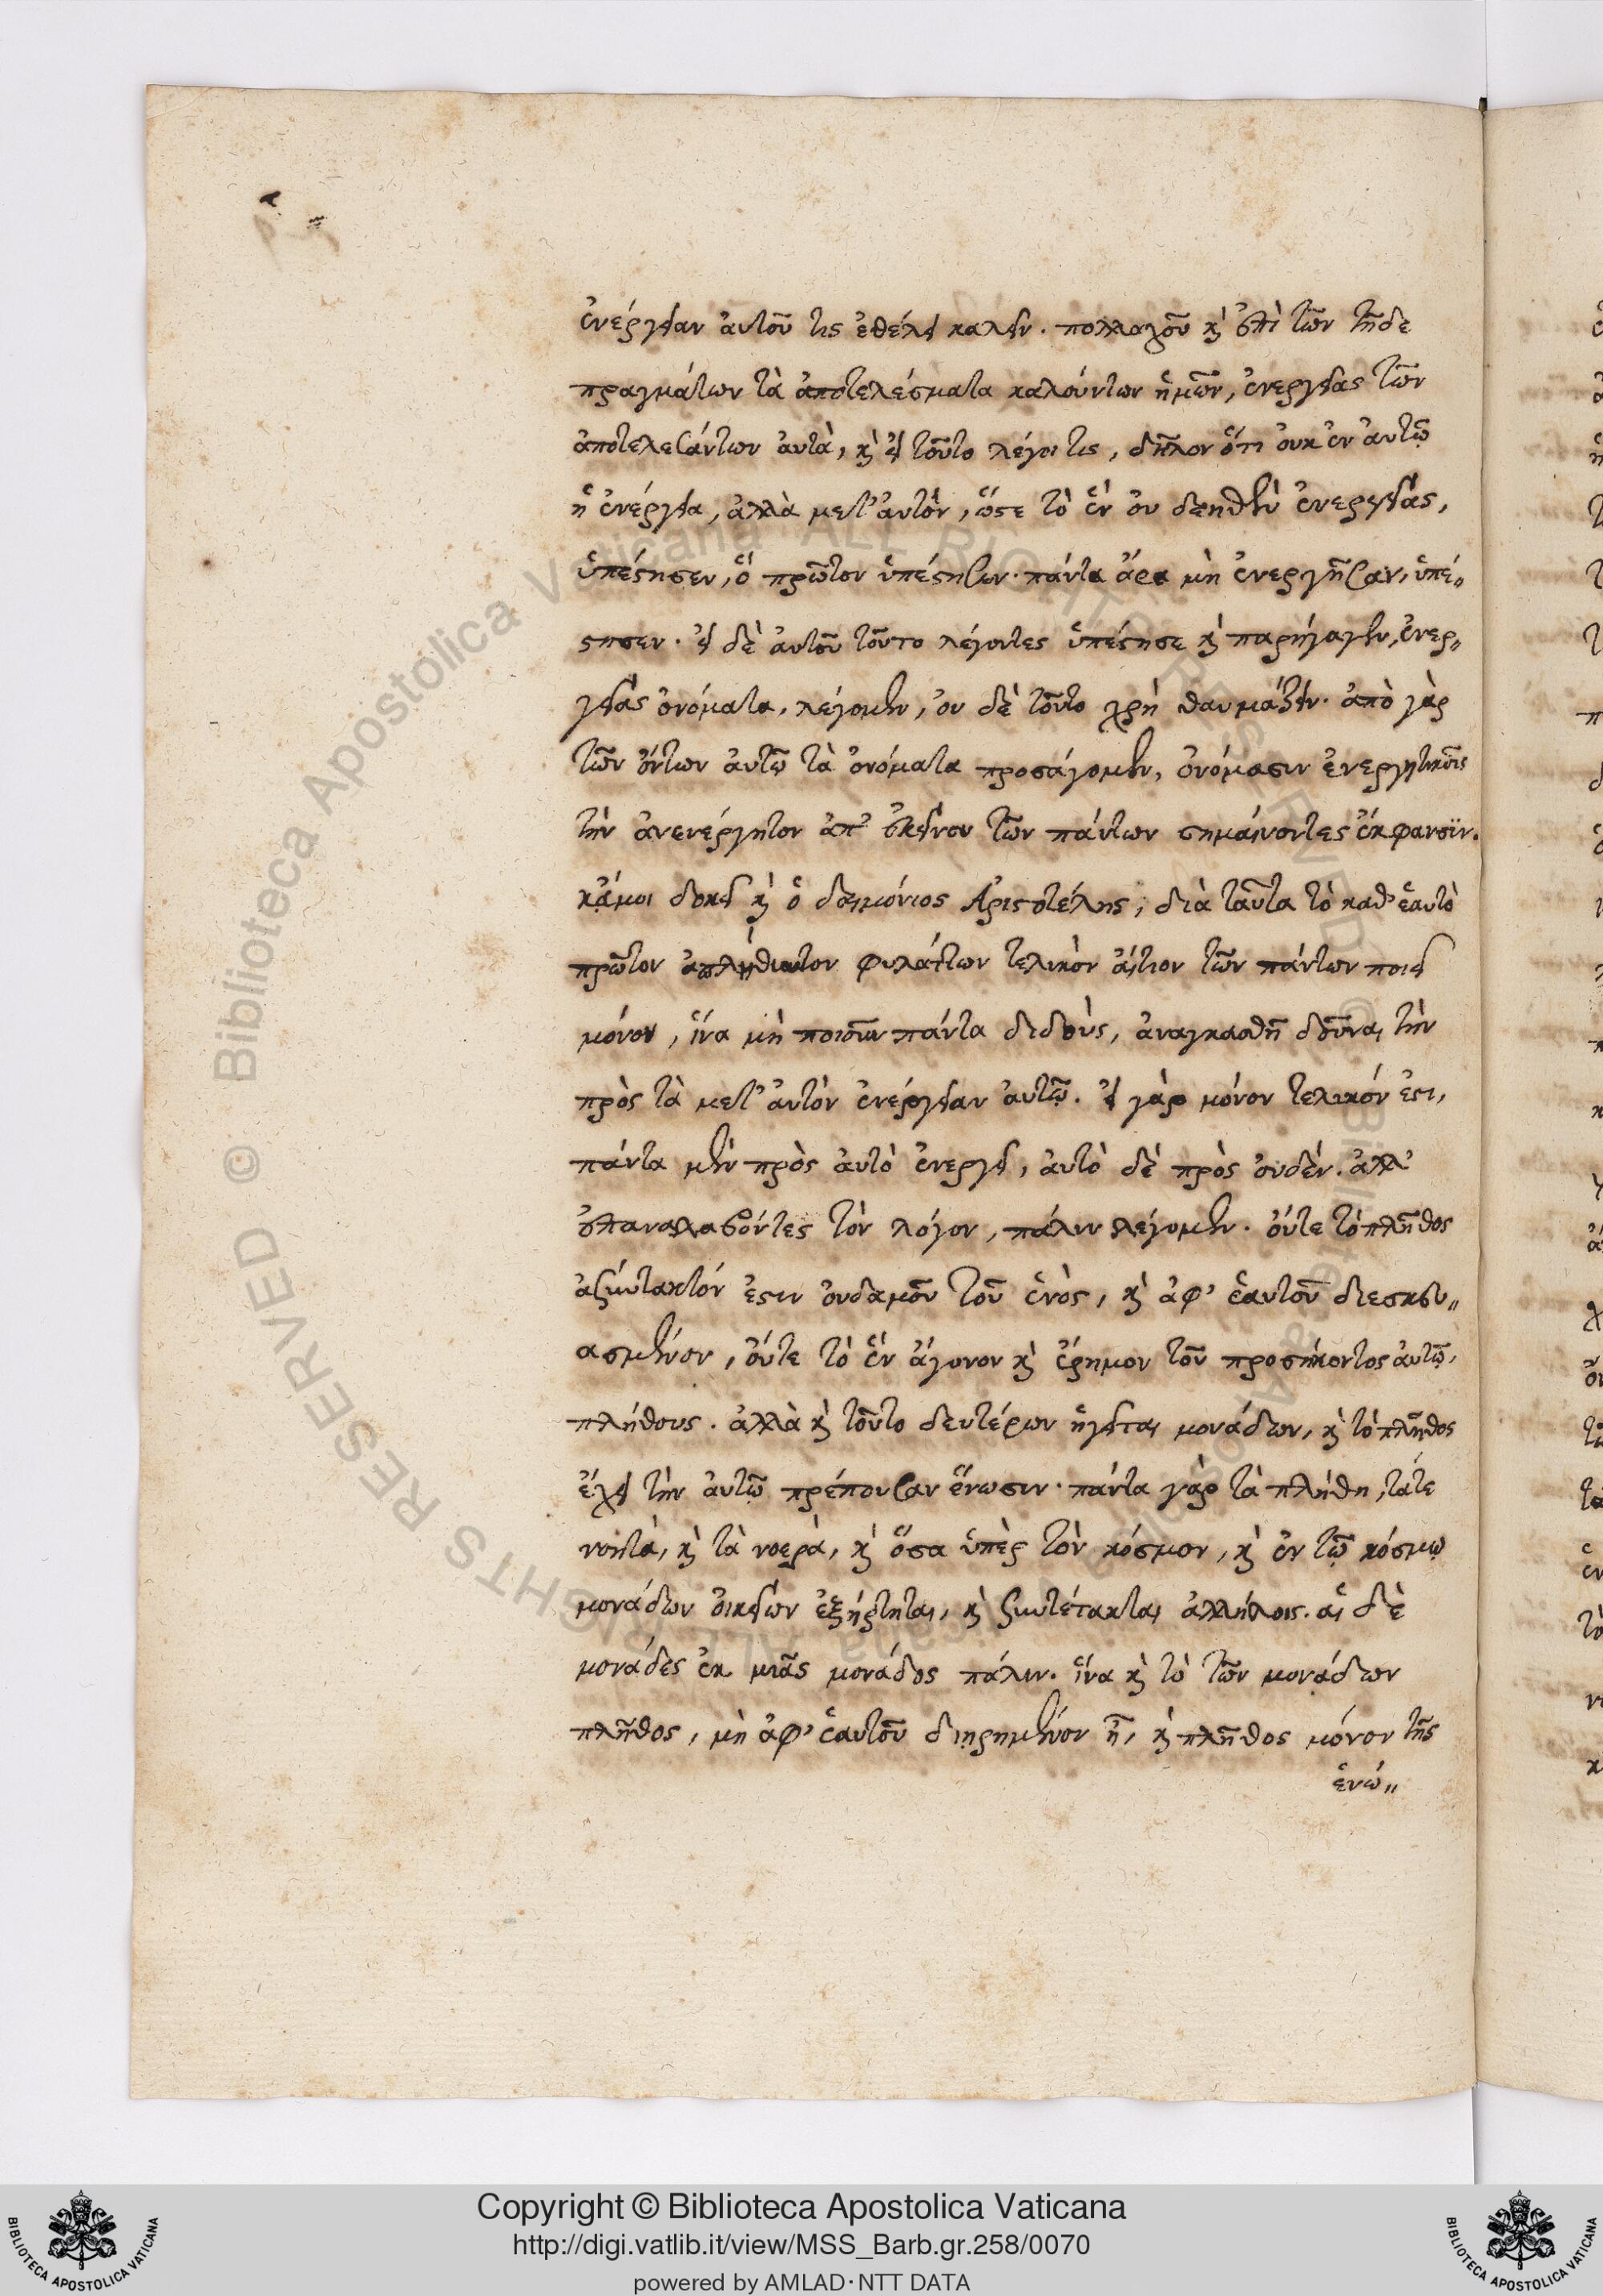 ἐνέργειαν ἀυτοῦ τὶς ἐθέλει καλεῖν. πολλαχοῦ κὶ ἐπὶ τῶν τῇδε
πραγμάτων τὰ ἀποτελέσματα καλούντων ἡμῶν, ἐνεργείας τῶν
ἀποτελεσάντων ἀυτὰ, κὶ εἰ τοῦτο λέγοι τις, δῆλον ὅτι ὀυκ ἐν ἀυτῷ
ἡ ἐνέργεια, ἀλλὰ μετ' ἀυτὸν, ὥστε τὸ ἓν ὀυ δεηθὲν ἐνεργείας,
ὑπέστησεν, ὅ πρῶτον ὑπέστησεν. πάντα ἄρα μὴ ἐνεργῆσαν, ὑπέ〃
στησεν. εἰ δὲ ἀυτοῦ τοῦτο λέγοντες ὑπέστησε κὶ παρήγαγεν, ἐνερ〃
γείας ὀνόματα, λέγομεν, ὀυ δὲ τοῦτο χρὴ θαυμάζειν. ἀπὸ γὰρ
τῶν ὄντων ἀυτῷ τὰ ὀνόματα προσάγομεν, ὀνόμασιν ἐνεργητικοῖς
τὴν ἀνενέργητον ἀπ' ἐκείνου τῶν πάντων σημαίνοντες ἔκφανσϊν.
κᾄμοι δοκεῖ κὶ ὁ δαιμόνιος Ἀριστοτέλης, διὰ ταῦτα τὸ καθ' ἑαυτὸ
πρῶτον ἀπλήθυντον φυλάττων τελικὸν ἄιτιον τῶν πάντων ποιεῖ
μόνον, ἵνα μὴ ποιοῦν πάντα διδοὺς, ἀναγκασθῇ δοῦναι τὴν
πρὸς τὰ μετ' ἀυτὸν ἐνέργειαν ἀυτῷ. εἰ γὰρ μόνον τελικόν ἐστι,
πάντα μὲν πρὸς ἀυτὸ ἐνεργεῖ, ἀυτὸ δὲ πρὸς ὀυδέν. ἀλλ'
ἐπαναλαβόντες τὸν λόγον, πάλιν λέγομεν. ὄυτε τὸ πλῆθος
ἀξύντακτόν ἐστιν ὀυδαμοῦ τοῦ ἑνὸς, κὶ ἀφ' ἑαυτοῦ διεσπευ〃
ασμένον, ὄυτε τὸ ἓν ἄγονον κὶ ἔρημον τοῦ προσήκοντος ἀυτῷ,
πλήθους. ἀλλὰ κὶ τοῦτο δευτέρων ἡγεῖται μονάδων, κὶ τὸ πλῆθος
ἔχει τὴν ἀυτῷ πρέπουσαν ἕνωσιν. πάντα γὰρ τὰ πλήθη, τάτε
νοητὰ, κὶ τὰ νοερὰ, κὶ ὅσα ὑπὲρ τὸν κόσμον, κὶ ἐν τῷ κόσμῳ
μονάδων ὀικείων ἐξήρτηται, κὶ ξυντέτακται ἀλλήλοις. ἁι δὲ
μονάδες ἐκ μιᾶς μονάδος πάλιν. ἵνα κὶ τὸ τῶν μονάδων
πλῆθος, μὴ ἀφ' ἑαυτοῦ διῃρημένον ᾖ, κὶ πλῆθος μόνον τῆς
ἑνώ〃
Copyright © Biblioteca Apostolica Vaticana
http://digi.vatlib.it/view/MSS_Barb.gr.258/0070
powered by AMLAD·NTT DATA